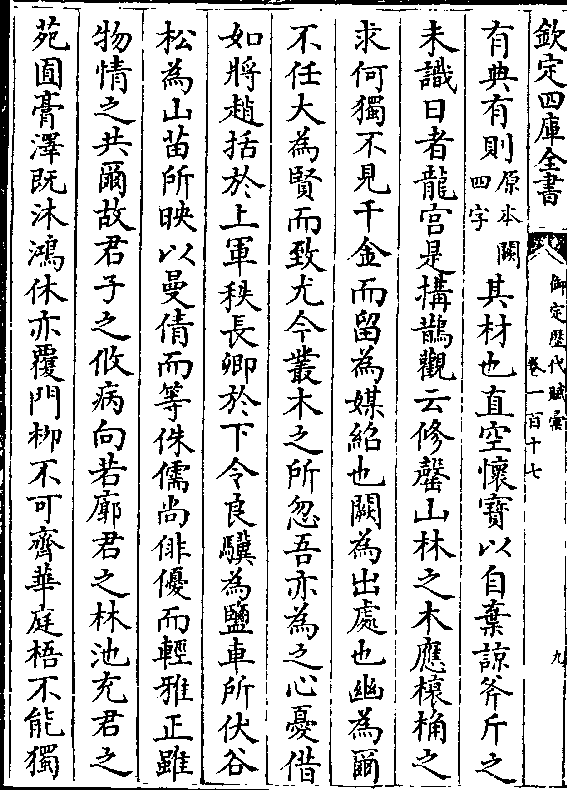 欽定四庫全書
御定歷代賦彙
卷一百十七
九
有典有則原本闕四字其材也直空懷寶以自棄諒斧斤之
未識日者龍宮是搆鵲觀云修罄山林之木應榱桷之
求何獨不見千金而留為媒紹也闕為出處也幽為爾
不任大為賢而致尤今叢木之所忽吾亦為之心憂借
如將趙括於上軍秩長卿於下令良驥為鹽車所伏谷
松為山苗所映以曼倩而等侏儒尚俳優而輕雅正雖
物情之共爾故君子之攸病向若廓君之林池充君之
苑囿膏澤既沐鴻休亦覆門栁不可齊華庭梧不能獨